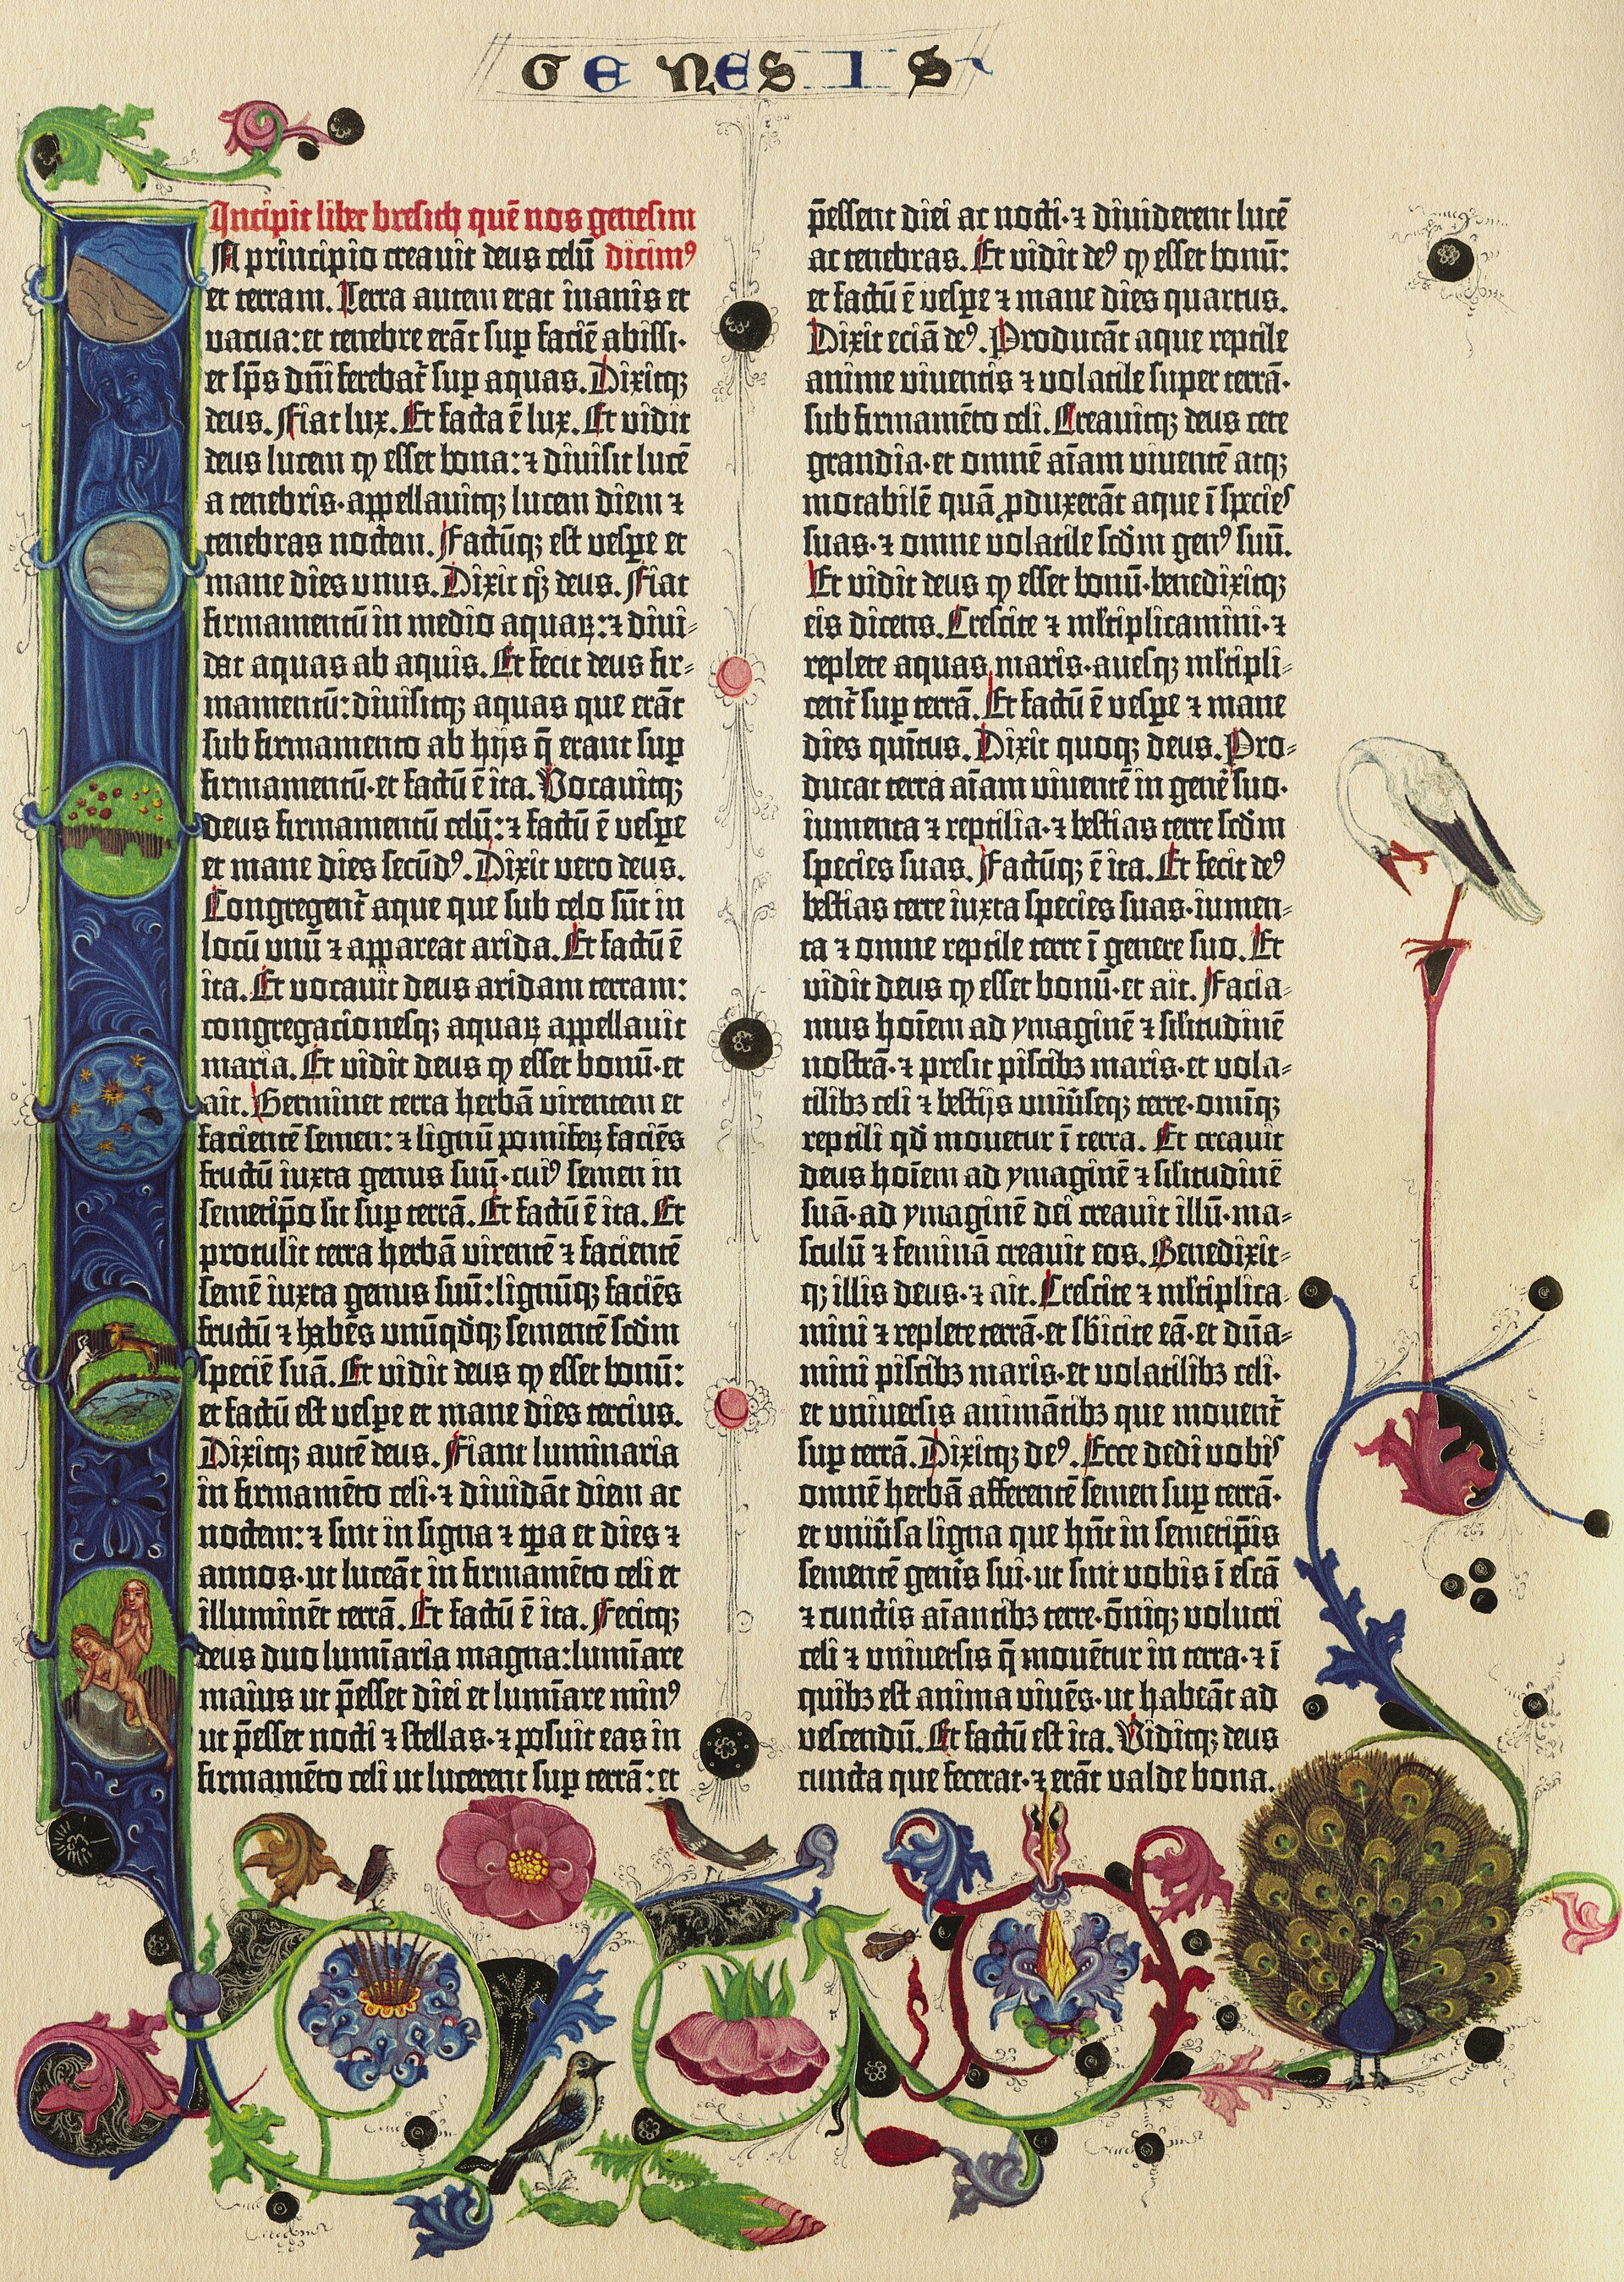 GENESIS
Incipit liber bresith quē nos genesim
In principio creauit deus celū dicimꝰ
et terram. Terra autem erat inanis et
vacua: et tenebre erāt sup faciē abissi·
et sp̄s dn̄i ferebat᷑ sup aquas. Dixitqꝫ
deus. Fiat lux. Et facta ē lux. Et vidit
deus lucem ꝙ esset bona: ⁊ diuisit lucē
a tenebris· appellauitqꝫ lucem diem ⁊
tenebras noctem. Factūqꝫ est vespe et
mane dies unus. Dixit qꝫ deus. Fiat
firmamentū in medio aquaꝝ: ⁊ diui-
dat aquas ab aquis. Et fecit deus fir-
mamentū: diuisitqꝫ aquas que erāt
sub firmamento ab hijs q̄ erant sup
firmamentū· et factū ē ita. Vocauitqꝫ
deus firmamentū celū: ⁊ factū ē vespe
et mane dies secūdꝰ. Dixit vero deus.
Congregent᷑ aque que sub celo sūt in
locū unū ⁊ appareat arida. Et factū ē
ita. Et vocauit deus aridam terram:
congregacionesqꝫ aquaꝝ appellauit
maria. Et vidit deus ꝙ esset bonū· et
ait. Germinet terra herbā virentem et
facientē semen: ⁊ lignū pomiferꝝ faciēs
fructū iuxta genus suū· cuiꝰ semen in
semetip̄o sit sup terrā. Et factū ē ita. Et
protulit terra herbā virentē ⁊ facientē
semē iuxta genus suū: lignūqꝫ faciēs
fructū ⁊ habēs unūqdqꝫ sementē scdm
speciē suā. Et vidit deus ꝙ esset bonū:
et factū est vespe et mane dies tercius.
Dixitqꝫ autē deus. Fiant luminaria
in firmamēto celi· ⁊ diuidāt diem ac
noctem: ⁊ sint in signa ⁊ tp̄a et dies ⁊
annos· ut luceāt in firmamēto celi et
illuminēt terrā. Et factū ē ita. Fecitqꝫ
deus duo lumīaria magna: lumīare
maius ut p̄esset diei et lumīare minꝰ
ut p̄esset nocti ⁊ stellas· ⁊ posuit eas in
firmamēto celi ut lucerent sup terrā: et
p̄essent diei ac nocti· ⁊ diuiderent lucē
ac tenebras. Et vidit deꝰ ꝙ esset bonū:
et factū ē vespe ⁊ mane dies quartus.
Dixit eciā deꝰ. Producāt aque reptile
anime viuentis ⁊ volatile super terrā·
sub firmamēto celi. Creauitqꝫ deus cete
grandia· et omnē aīam viuentē atqꝫ
motabilē quā ꝓduxerāt aque ī species
suas· ⁊ omne volatile scdm genꝰ suū.
Et vidit deus ꝙ esset bonū· benedixitqꝫ
eis dicens. Crescite ⁊ ml̄tiplicamini· ⁊
replete aquas maris· auesqꝫ ml̄tipli-
cent᷑ sup terrā. Et factū ē vespe ⁊ mane
dies quītus. Dixit quoqꝫ deus. Pro-
ducat terra aīam viuentē in genē suo·
iumenta ⁊ reptilia· ⁊ bestias terre scdm
species suas. Factūqꝫ ē ita. Et fecit deꝰ
bestias terre iuxta species suas· iumen-
ta ⁊ omne reptile terre ī genere suo. Et
vidit deus ꝙ esset bonū· et ait. Facia-
mus hoīem ad ymaginē ⁊ sil̄itudinē
nostrā· ⁊ presit piscibꝫ maris· et vola-
tilibꝫ celi ⁊ bestijs uniūseqꝫ terre· omīqꝫ
reptili qd̄ mouetur ī terra. Et creauit
deus hoīem ad ymaginē ⁊ sil̄itudinē
suā· ad ymaginē dei creauit illū· ma-
sculū ⁊ feminā creauit eos. Benedixit-
qꝫ illis deus· ⁊ ait. Crescite ⁊ ml̄tiplica-
mini ⁊ replete terrā· et sb̄icite eā· et dn̄a-
mini piscibꝫ maris· et volatilibꝫ celi·
et uniuersis animātibꝫ que mouent᷑
sup terrā. Dixitqꝫ deꝰ. Ecce dedi vobis
omnē herbā afferentē semen sup terrā·
et uniūsa ligna que hn̄t in semetip̄is
sementē genīs sui· ut sint vobis ī escā
⁊ cunctis aīantibꝫ terre· ōniqꝫ volucri
celi ⁊ uniuersis q̄ mouētur in terra· ⁊ ī
quibꝫ est anima viuēs· ut habeāt ad
vescendū. Et factū est ita. Viditqꝫ deus
cuncta que fecerat· ⁊ erāt valde bona.